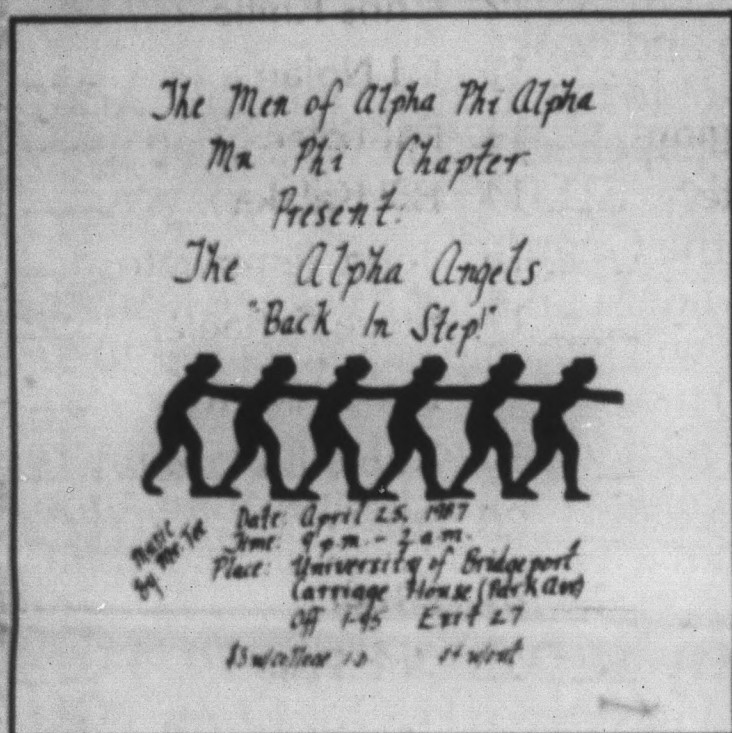 The Men of Alpha Phi Alpha
Mu Phi Chapter
Present:
The Alpha Angels
"Back In Step!"
Music
By Mr. Tee
Date: April 25, 1987
Time: 9 p.m. - 2 a.m.
Place: University of Bridgeport
Carriage House (Park Ave)
Off I-95 Exit 27
$3 w/college I.D. $4 w/out